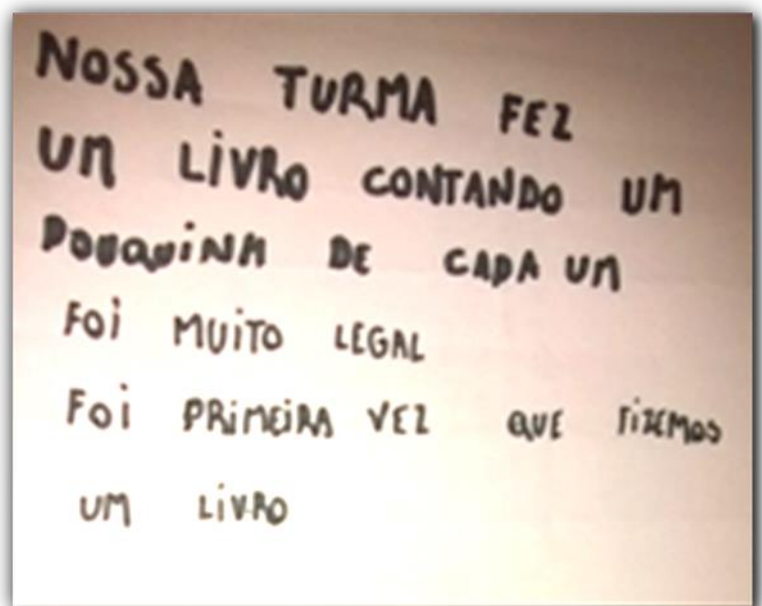 NOSSA TURMA FEZ
UM LiVRO CONTANDO UM
POUQUiNH DE CADA UM
FOi MUiTO LEGAL
FOi PRiMEiRA VEZ QUE FiZEMOS
UM LiVRO